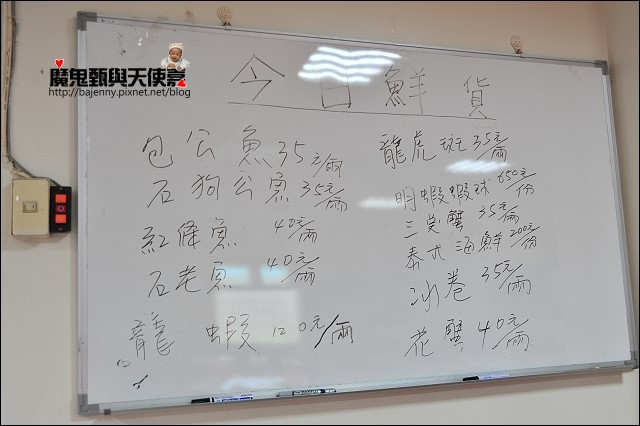 魔鬼甄與天使嘉
http://bajenny.pixnet.net/blog
今日鮮貨
包公魚35元/兩
石狗公魚35元/兩
紅條魚 40元/兩
石老魚 40元/兩
龍蝦120元/兩
龍虎斑35元/兩
明蝦蝦球650元/份
三點蟹35元/兩
泰式海鮮200元/份
冰卷35元/兩
花蟹40元/兩